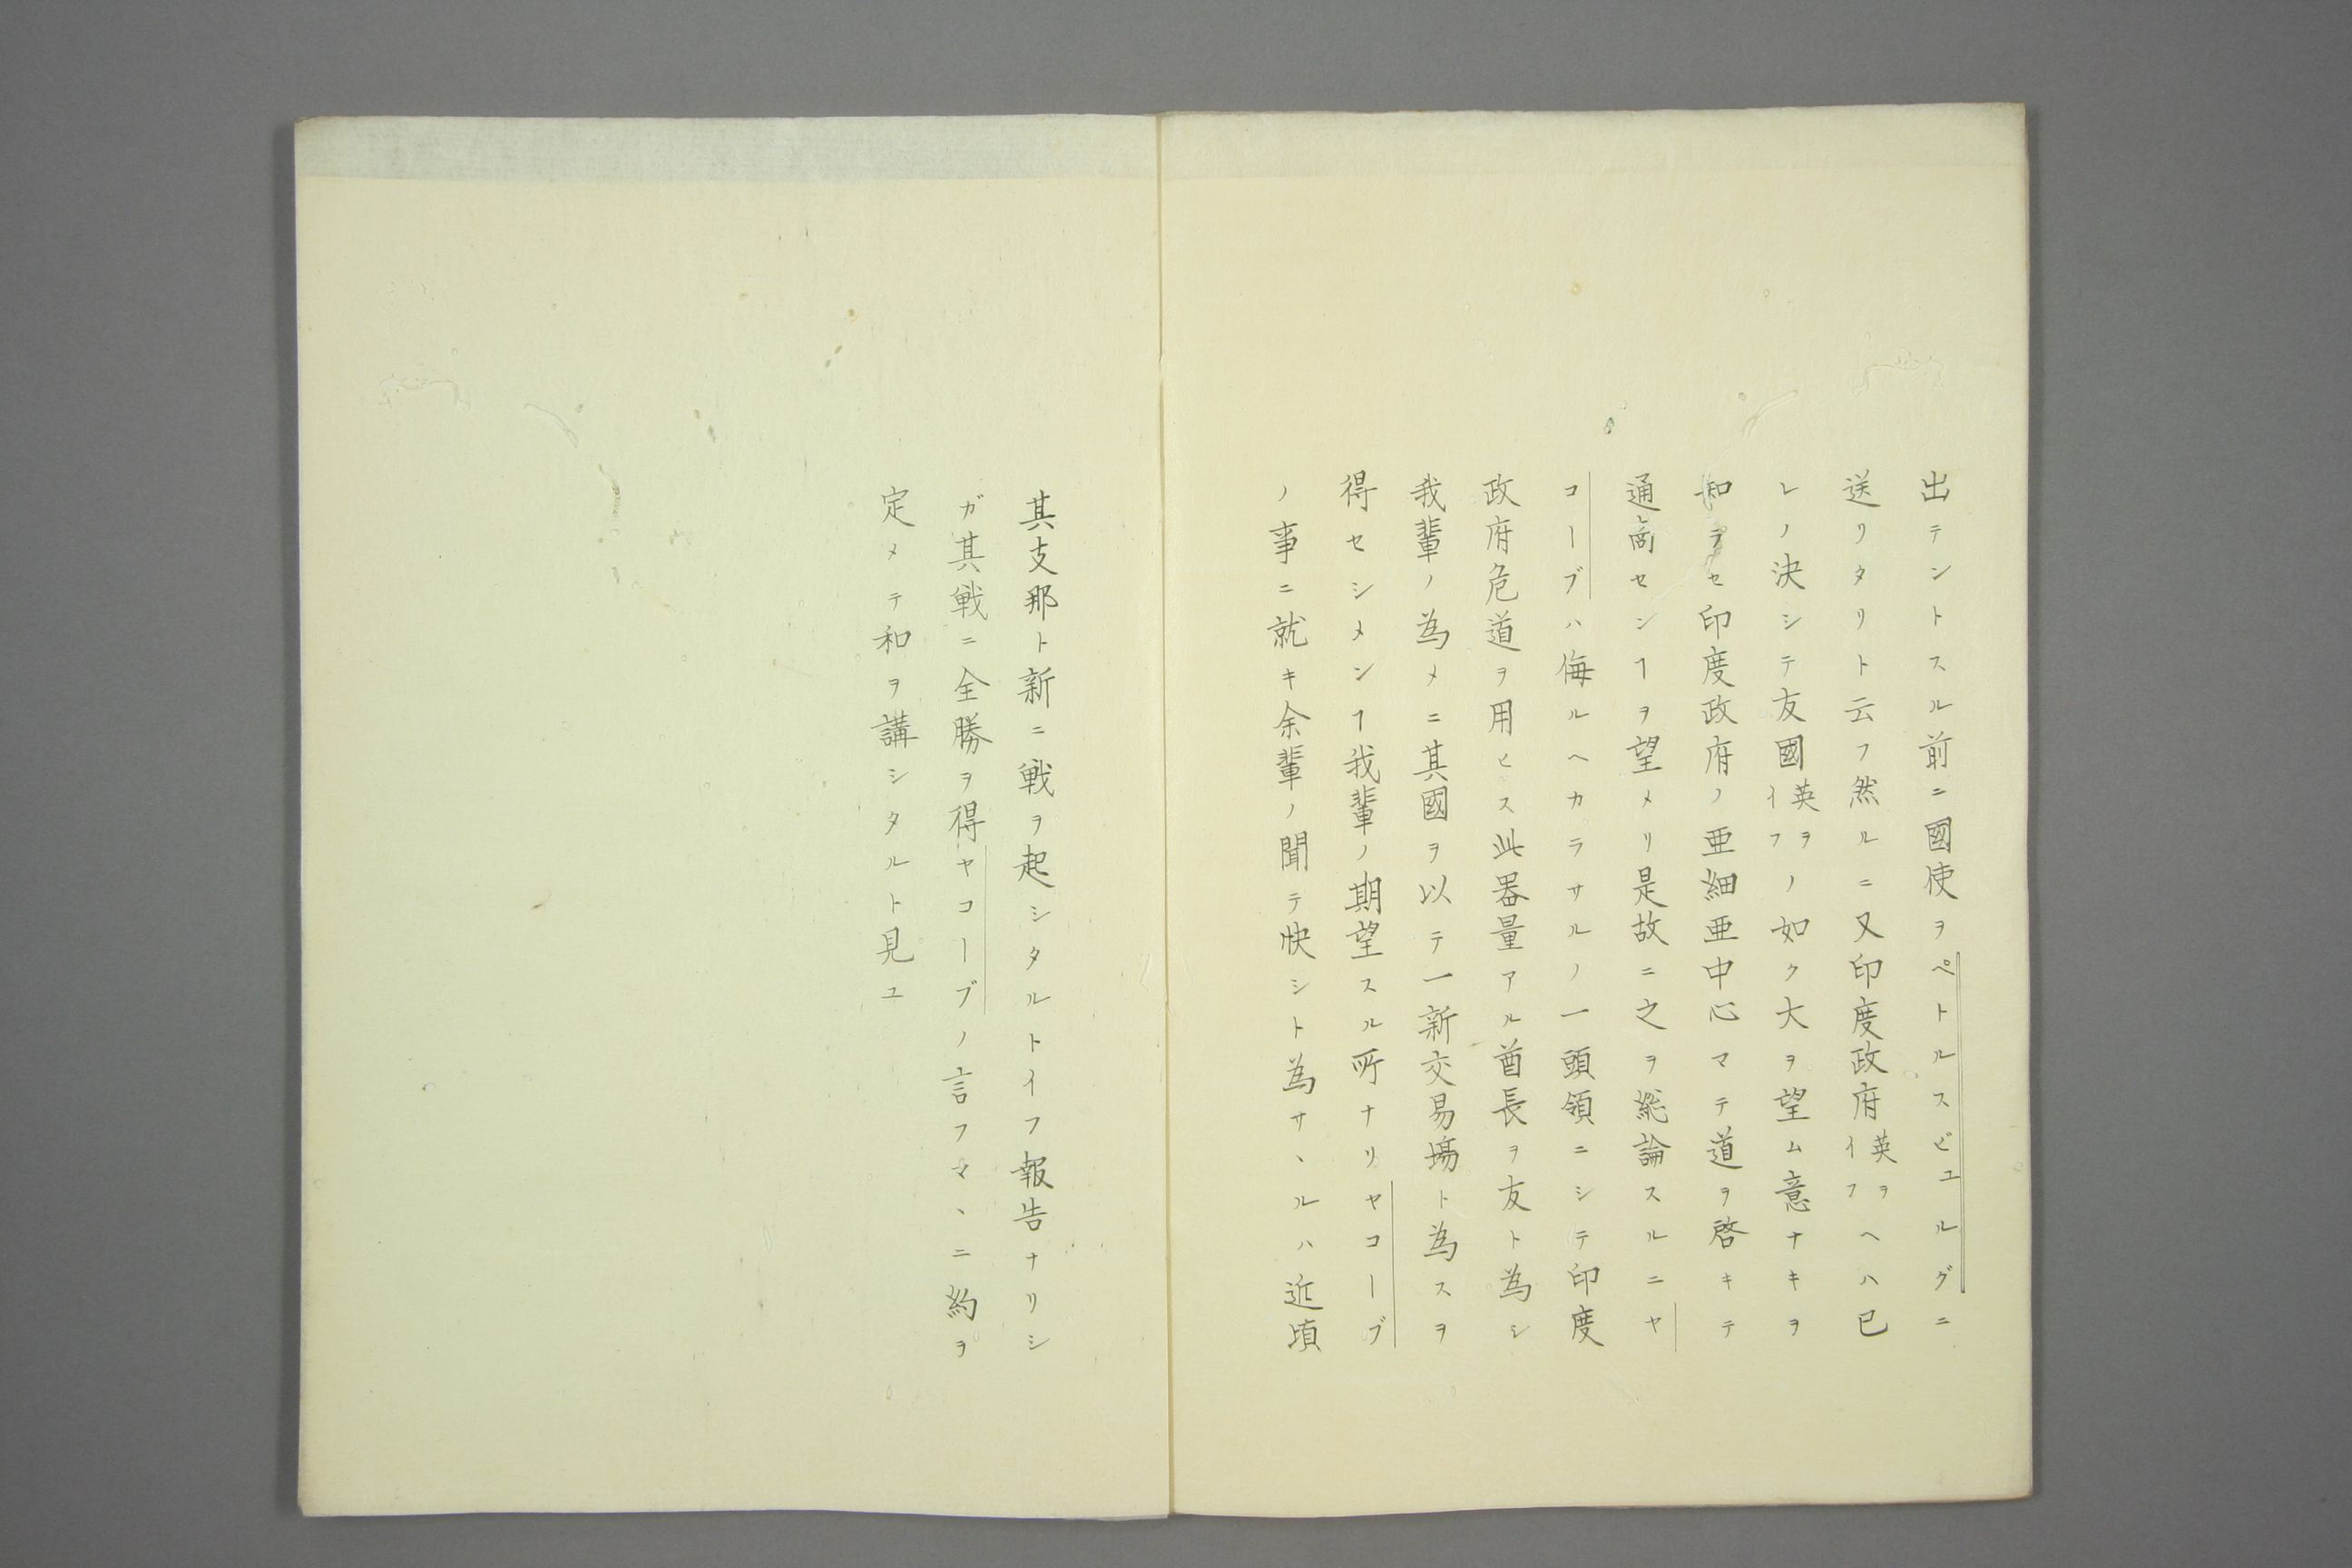 出テントスル前ニ國使ヲペトルスビユルグニ
送リタリト云フ然ルニ又印度政府英ヲイフヘハ已
レノ決シテ友國英ヲイフノ如ク大ヲ望ム意ナキヲ
知ラセ印度政府ノ亜細亜中心マテ道ヲ啓キテ
通商センヿヲ望メリ是故ニ之ヲ総論スルニヤ
コーブハ侮ルヘカラサルノ一頭領ニシテ印度
政府危道ヲ用ヒス此器量アル酋長ヲ友ト為シ
我輩ノ為メニ其國ヲ以テ一新交易場ト為スヲ
得セシメンヿ我輩ノ期望スル所ナリヤコーブ
ノ事ニ就キ余輩ノ聞テ快シト為サヽルハ近頃
其支那ト新ニ戦ヲ起シタルトイフ報告ナリシ
ガ其戦ニ全勝ヲ得ヤコーブノ言フマヽニ約ヲ
定メテ和ヲ講シタルト見ユ